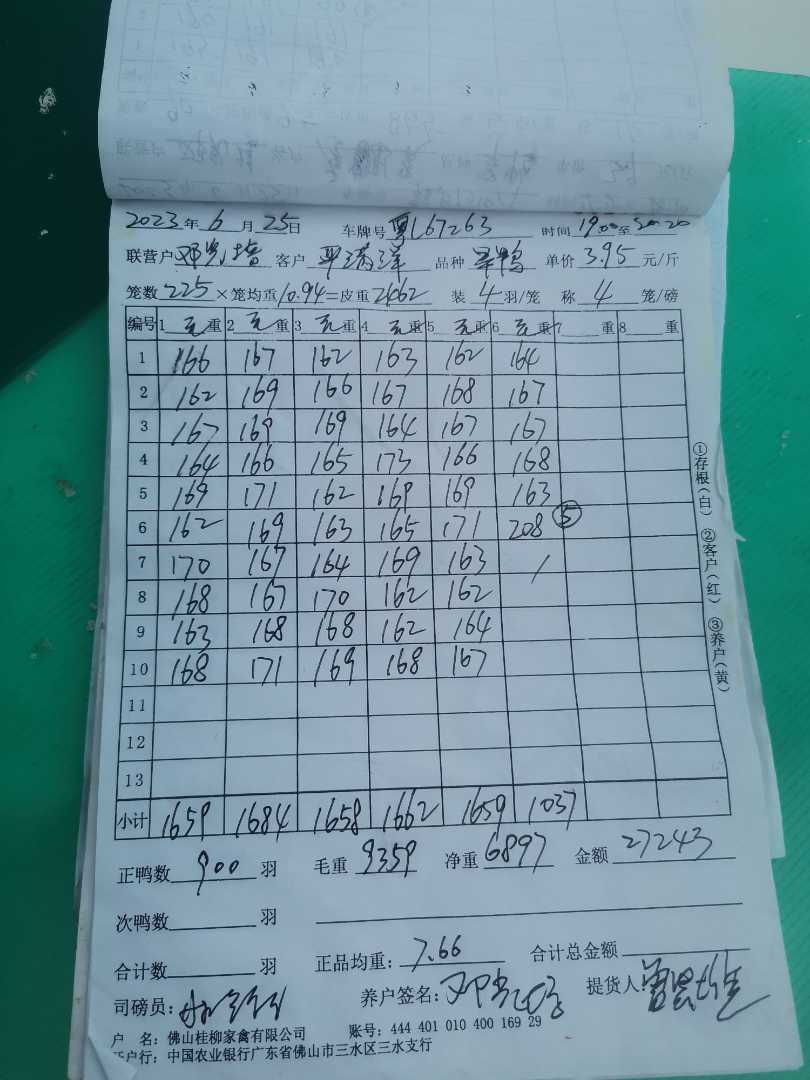 2023年6月25日 车牌号 粤L67263 时间 19:00至20:20
联营户 邓 培 客户 平 洋 品种 鸭 单价 3.95 元/斤
笼数 225 ×笼均重 10.94 =皮重 2462 装 4 羽/笼 称 4 笼/磅
编号 1 毛 重 2 毛 重 3 毛 重 4 毛 重 5 毛 重 6 毛 重 7 重 8 重
1 166 167 162 163 162 164
2 162 169 166 167 168 167
3 167 169 169 164 167 167
4 164 166 165 173 166 168
5 169 171 162 169 169 163
6 162 169 163 165 171 208 ⑤
7 170 167 164 169 163 /
8 168 167 170 162 162
9 163 168 168 162 164
10 168 171 169 168 167
11
12
13
小计 1659 1684 1658 1662 1659 1037
正鸭数 900 羽 毛重 9359 净重 6897 金额 27243
次鸭数 羽
合计数 羽 正品均重: 7.66 合计总金额
司磅员: 养户签名: 提货人:
户 名: 佛山桂柳家禽有限公司 账号: 444 401 010 400 169 29
开户行: 中国农业银行广东省佛山市三水区三水支行
①存根(白) ②客户(红) ③养户(黄)